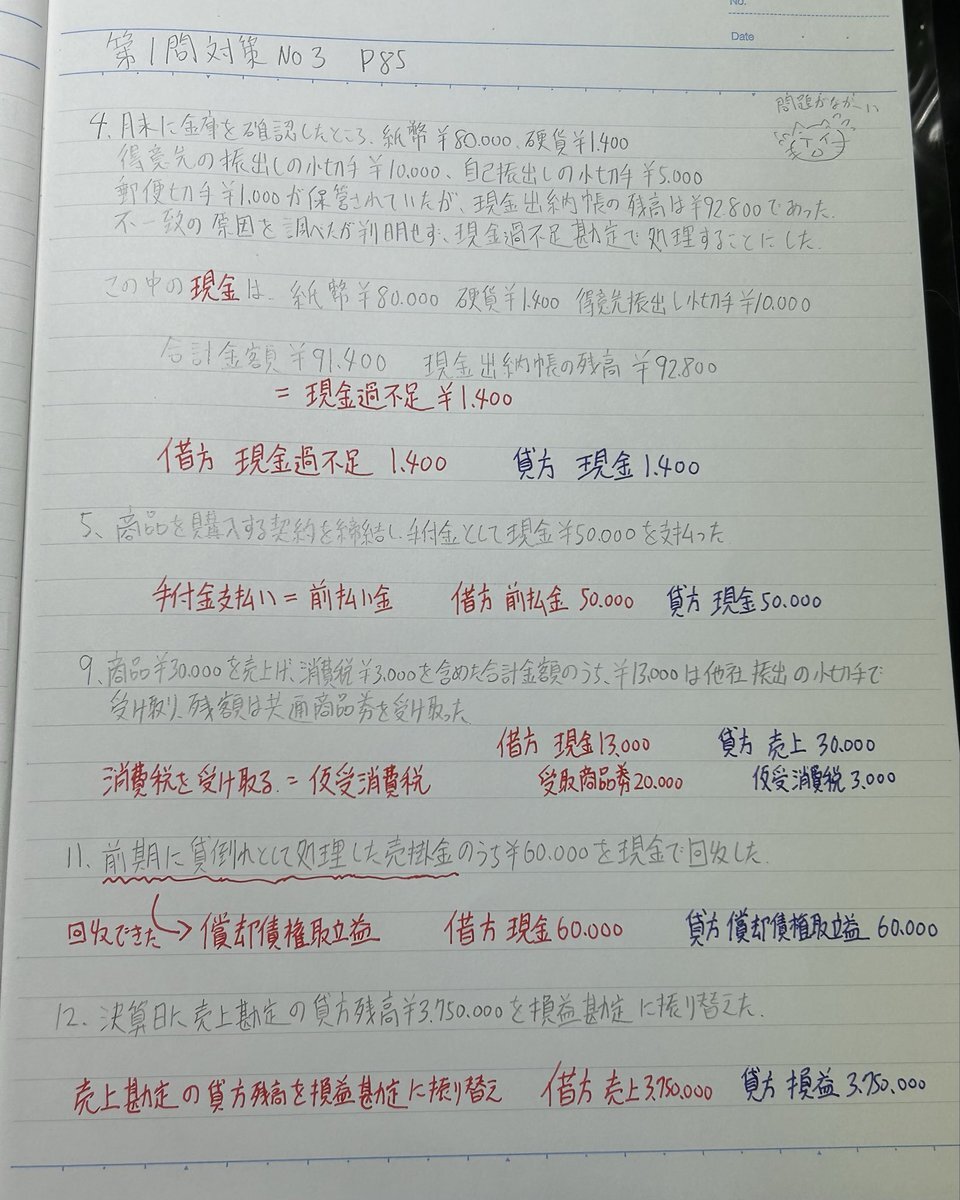 No.
Date
第1問対策 No3 P85
問題がながーい
4、月末に金庫を確認したところ、紙幣￥80.000、硬貨￥1.400
得意先の振出しの小切手￥10.000、自己振出しの小切手￥5.000
郵便切手￥1.000が保管されていたが、現金出納帳の残高は￥92.800であった.
不一致の原因を調べたが判明せず、現金過不足勘定で処理することにした.
この中の現金は、紙幣￥80.000 硬貨￥1.400 得意先振出し小切手￥10.000
合計金額￥91.400 現金出納帳の残高￥92.800
= 現金過不足￥1.400
借方 現金過不足 1.400 貸方 現金1.400
5、商品を購入する契約を締結し、手付金として現金￥50.000を支払った.
手付金支払い = 前払い金 借方 前払金 50.000 貸方 現金50.000
9、商品￥30.000を売上げ、消費税￥3.000を含めた合計金額のうち、￥13.000は他社振出の小切手で
受け取り、残額は共通商品券を受け取った.
借方 現金13.000 貸方 売上 30.000
消費税を受け取る = 仮受消費税 受取商品券20.000 仮受消費税 3.000
11、前期に貸倒れとして処理した売掛金のうち￥60.000を現金で回収した.
回収できた→償却債権取立益 借方 現金60.000 貸方 償却債権取立益 60.000
12、決算日に売上勘定の貸方残高￥3.750.000を損益勘定に振り替えた.
売上勘定の貸方残高を損益勘定に振り替え 借方 売上3.750.000 貸方 損益 3.750.000